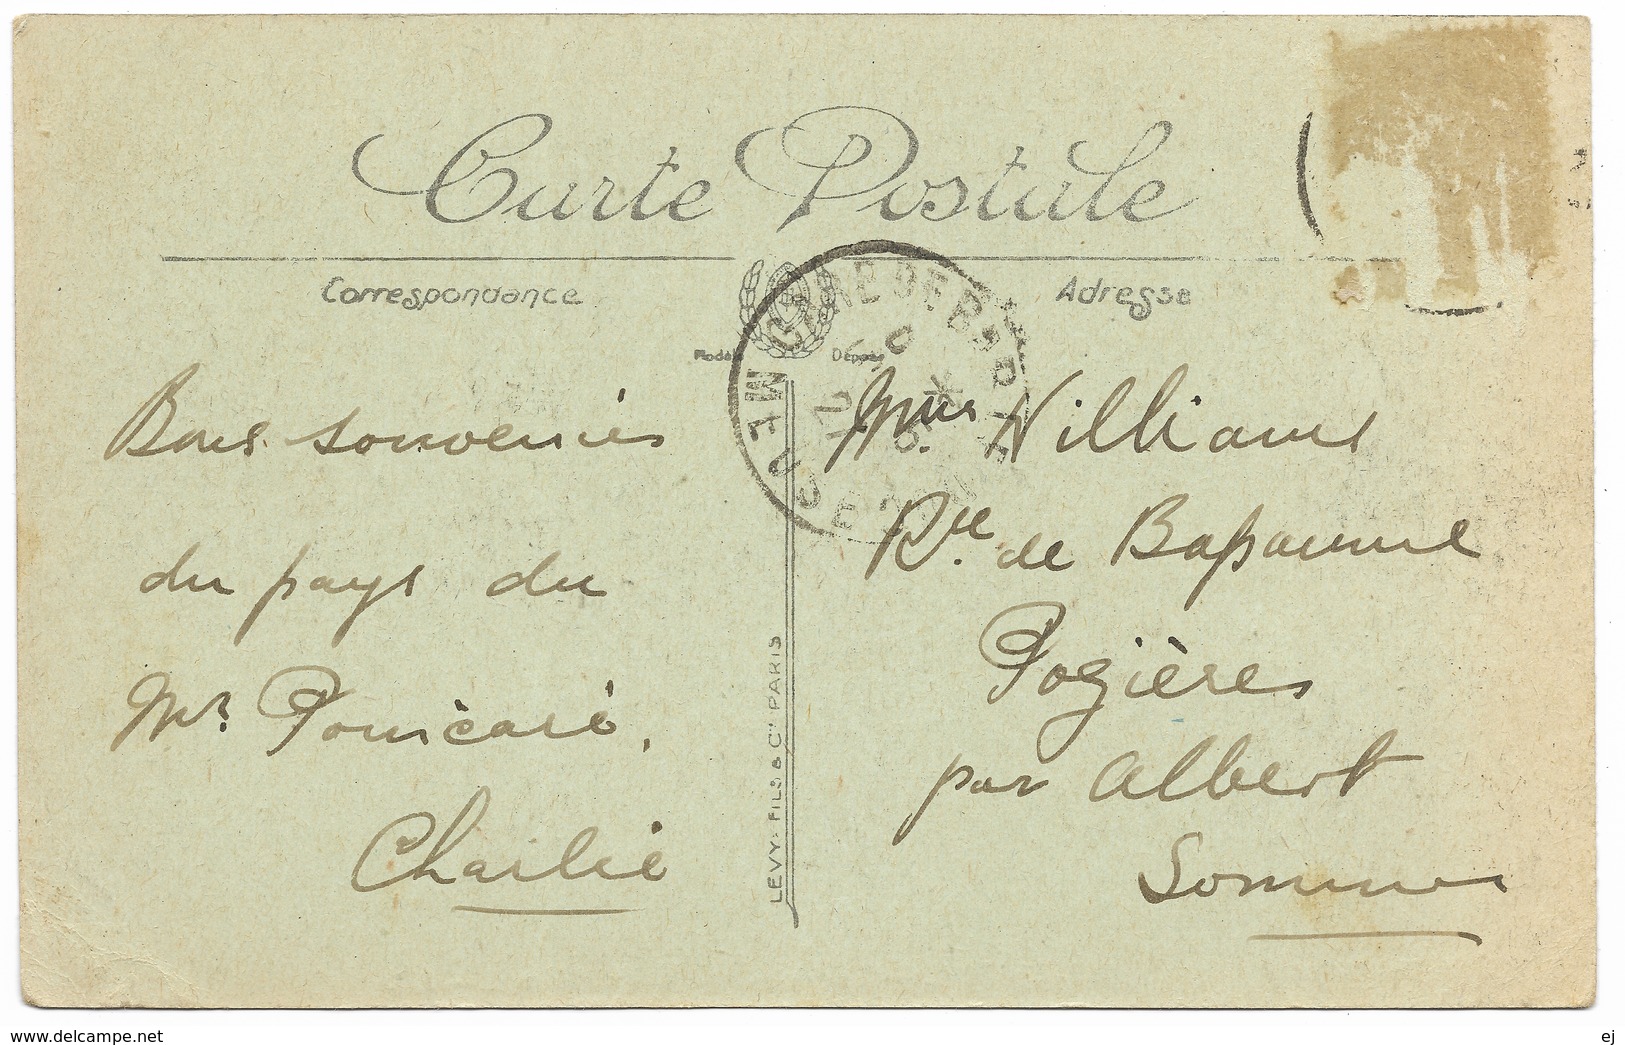 Carte Postale
Correspondance
Adresse
GARE DE B
MEUSE
Bons souvenirs
du pays du
Mr. Poincaré,
Charlie
LEVY FILS & Cie PARIS
Williams
Rte. de Bapaume
Pozières
par Albert
Somme
www.delcampe.net
ej